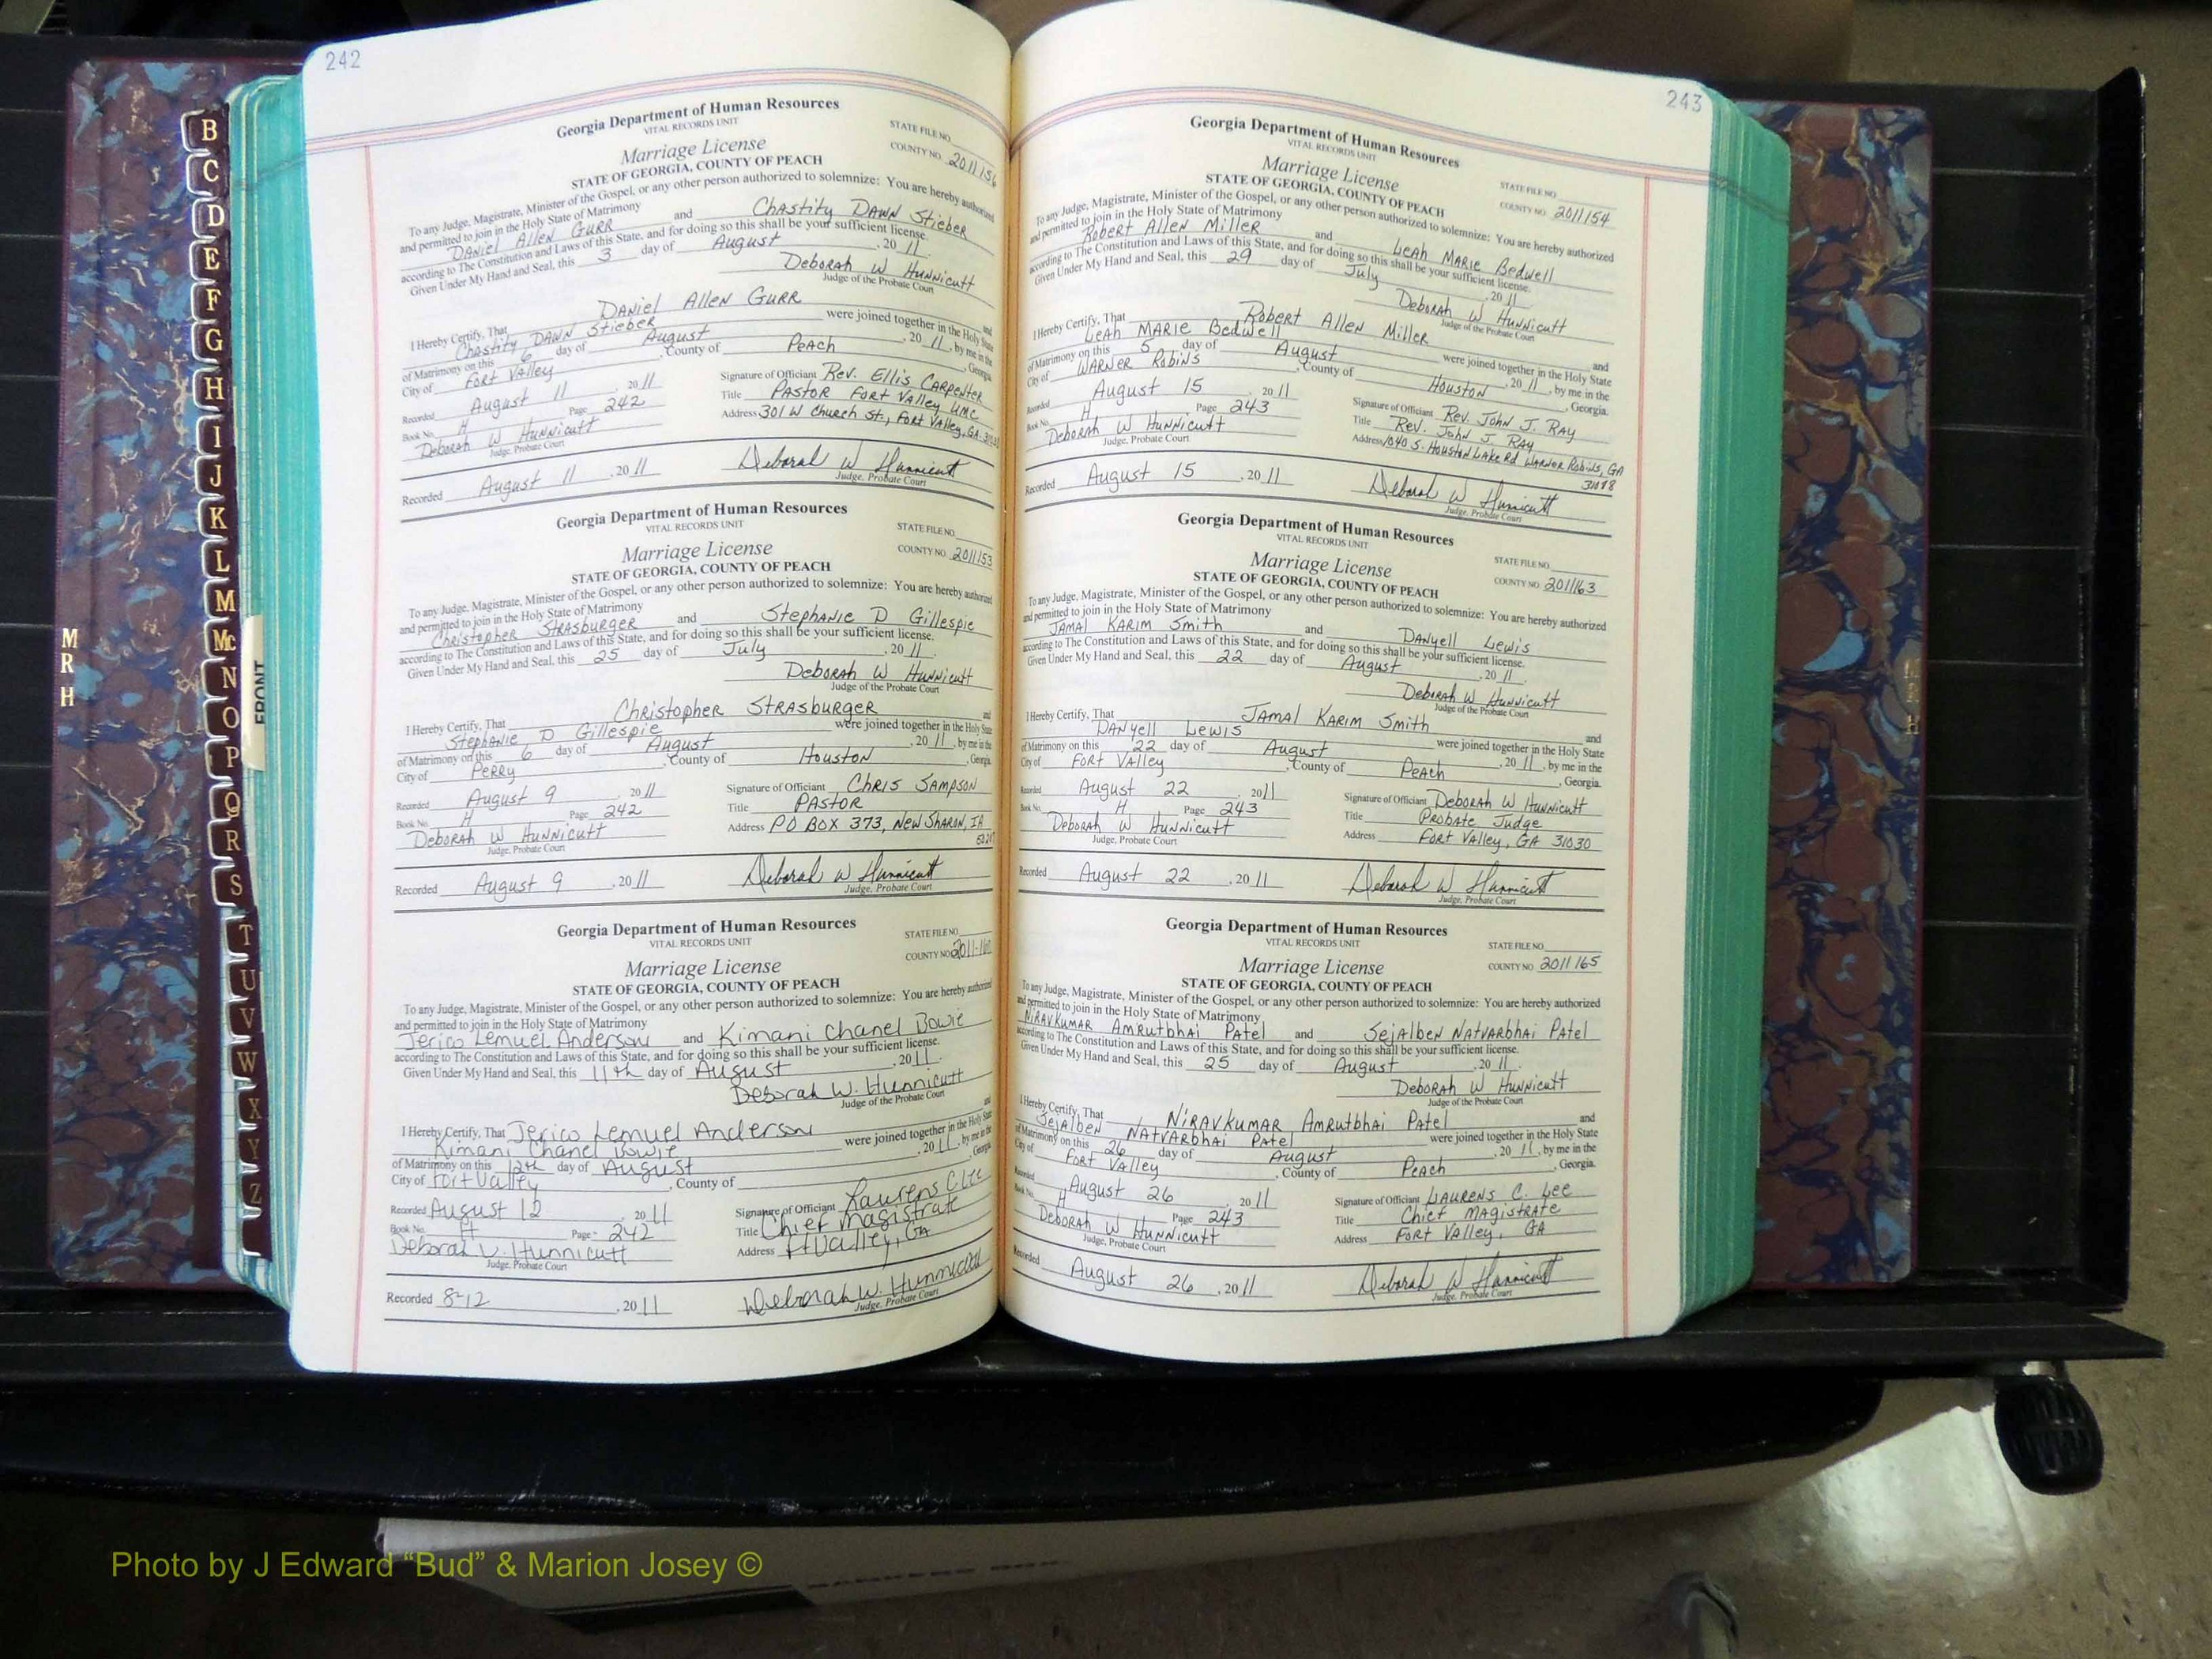 242
Georgia Department of Human Resources
VITAL RECORDS UNIT
STATE FILE NO.
Marriage License
COUNTY NO. 2011156
STATE OF GEORGIA, COUNTY OF PEACH
To any Judge, Magistrate, Minister of the Gospel, or any other person authorized to solemnize: You are hereby authorized
and permitted to join in the Holy State of Matrimony
Daniel Allen Gurr and Chastity Dawn Stieber
according to The Constitution and Laws of this State, and for doing so this shall be your sufficient license.
Given Under My Hand and Seal, this 3 day of August, 20 11.
Deborah W Hunnicutt
Judge of the Probate Court
I Hereby Certify, That Daniel Allen Gurr and
Chastity Dawn Stieber were joined together in the Holy State
of Matrimony on this 6 day of August, 20 11, by me in the
City of Fort Valley, County of Peach, Georgia.
Recorded August 11, 20 11
Signature of Officiant Rev. Ellis Carpenter
Book No. H Page 242
Title Pastor Fort Valley UMC
Deborah W Hunnicutt
Address 301 W Church St., Fort Valley, GA.
Judge, Probate Court
Recorded August 11, 20 11 Deborah W Hunnicutt
Judge, Probate Court
Georgia Department of Human Resources
VITAL RECORDS UNIT
STATE FILE NO.
Marriage License
COUNTY NO. 2011153
STATE OF GEORGIA, COUNTY OF PEACH
To any Judge, Magistrate, Minister of the Gospel, or any other person authorized to solemnize: You are hereby authorized
and permitted to join in the Holy State of Matrimony
Christopher Strasburger and Stephanie D Gillespie
according to The Constitution and Laws of this State, and for doing so this shall be your sufficient license.
Given Under My Hand and Seal, this 25 day of July, 20 11.
Deborah W Hunnicutt
Judge of the Probate Court
I Hereby Certify, That Christopher Strasburger and
Stephanie D Gillespie were joined together in the Holy State
of Matrimony on this 6 day of August, 20 11, by me in the
City of Perry, County of Houston, Georgia.
Recorded August 9, 20 11
Signature of Officiant Chris Sampson
Book No. H Page 242
Title Pastor
Deborah W Hunnicutt
Address PO Box 373, New Sharon, IA
Judge, Probate Court
Recorded August 9, 20 11 Deborah W Hunnicutt
Judge, Probate Court
Georgia Department of Human Resources
VITAL RECORDS UNIT
STATE FILE NO.
Marriage License
COUNTY NO.
STATE OF GEORGIA, COUNTY OF PEACH
To any Judge, Magistrate, Minister of the Gospel, or any other person authorized to solemnize: You are hereby authorized
and permitted to join in the Holy State of Matrimony
Jerico Lemuel Anderson and Kimani Chanel Bowie
according to The Constitution and Laws of this State, and for doing so this shall be your sufficient license.
Given Under My Hand and Seal, this 11th day of August, 20 11.
Deborah W. Hunnicutt
Judge of the Probate Court
I Hereby Certify, That Jerico Lemuel Anderson and
Kimani Chanel Bowie were joined together in the Holy State
of Matrimony on this 12th day of August, 20 11, by me in the
City of Fort Valley, County of , Georgia.
Recorded August 12, 20 11
Signature of Officiant Laurens C Lee
Book No. H Page 242
Title Chief Magistrate
Deborah W. Hunnicutt
Address Ft Valley, GA
Judge, Probate Court
Recorded 8-12, 20 11 Deborah W. Hunnicutt
Judge, Probate Court
243
Georgia Department of Human Resources
VITAL RECORDS UNIT
STATE FILE NO.
Marriage License
COUNTY NO. 2011154
STATE OF GEORGIA, COUNTY OF PEACH
To any Judge, Magistrate, Minister of the Gospel, or any other person authorized to solemnize: You are hereby authorized
and permitted to join in the Holy State of Matrimony
Robert Allen Miller and Leah Marie Bedwell
according to The Constitution and Laws of this State, and for doing so this shall be your sufficient license.
Given Under My Hand and Seal, this 29 day of July, 20 11.
Deborah W Hunnicutt
Judge of the Probate Court
I Hereby Certify, That Robert Allen Miller and
Leah Marie Bedwell were joined together in the Holy State
of Matrimony on this 5 day of August, 20 11, by me in the
City of Warner Robins, County of Houston, Georgia.
Recorded August 15, 20 11
Signature of Officiant Rev. John J. Ray
Book No. H Page 243
Title Rev. John J. Ray
Deborah W Hunnicutt
Address 1040 S. Houston Lake Rd Warner Robins, GA
Judge, Probate Court
Recorded August 15, 20 11 Deborah W Hunnicutt
Judge, Probate Court
Georgia Department of Human Resources
VITAL RECORDS UNIT
STATE FILE NO.
Marriage License
COUNTY NO. 2011163
STATE OF GEORGIA, COUNTY OF PEACH
To any Judge, Magistrate, Minister of the Gospel, or any other person authorized to solemnize: You are hereby authorized
and permitted to join in the Holy State of Matrimony
Jamal Karim Smith and Danyell Lewis
according to The Constitution and Laws of this State, and for doing so this shall be your sufficient license.
Given Under My Hand and Seal, this 22 day of August, 20 11.
Deborah W Hunnicutt
Judge of the Probate Court
I Hereby Certify, That Jamal Karim Smith and
Danyell Lewis were joined together in the Holy State
of Matrimony on this 22 day of August, 20 11, by me in the
City of Fort Valley, County of Peach, Georgia.
Recorded August 22, 20 11
Signature of Officiant Deborah W Hunnicutt
Book No. H Page 243
Title Probate Judge
Deborah W Hunnicutt
Address Fort Valley, GA 31030
Judge, Probate Court
Recorded August 22, 20 11 Deborah W Hunnicutt
Judge, Probate Court
Georgia Department of Human Resources
VITAL RECORDS UNIT
STATE FILE NO.
Marriage License
COUNTY NO. 2011165
STATE OF GEORGIA, COUNTY OF PEACH
To any Judge, Magistrate, Minister of the Gospel, or any other person authorized to solemnize: You are hereby authorized
and permitted to join in the Holy State of Matrimony
Niravkumar Amrutbhai Patel and Sejalben Natvarbhai Patel
according to The Constitution and Laws of this State, and for doing so this shall be your sufficient license.
Given Under My Hand and Seal, this 25 day of August, 20 11.
Deborah W Hunnicutt
Judge of the Probate Court
I Hereby Certify, That Niravkumar Amrutbhai Patel and
Sejalben Natvarbhai Patel were joined together in the Holy State
of Matrimony on this 26 day of August, 20 11, by me in the
City of Fort Valley, County of Peach, Georgia.
Recorded August 26, 20 11
Signature of Officiant Laurens C. Lee
Book No. H Page 243
Title Chief Magistrate
Deborah W Hunnicutt
Address Fort Valley, GA
Judge, Probate Court
Recorded August 26, 20 11 Deborah W Hunnicutt
Judge, Probate Court
B
C
D
E
F
G
H
I
J
K
L
M
Mc
N
O
P
Q
R
S
T
U
V
W
X
Y
Z
FRONT
M
R
H
Photo by J Edward “Bud” & Marion Josey ©